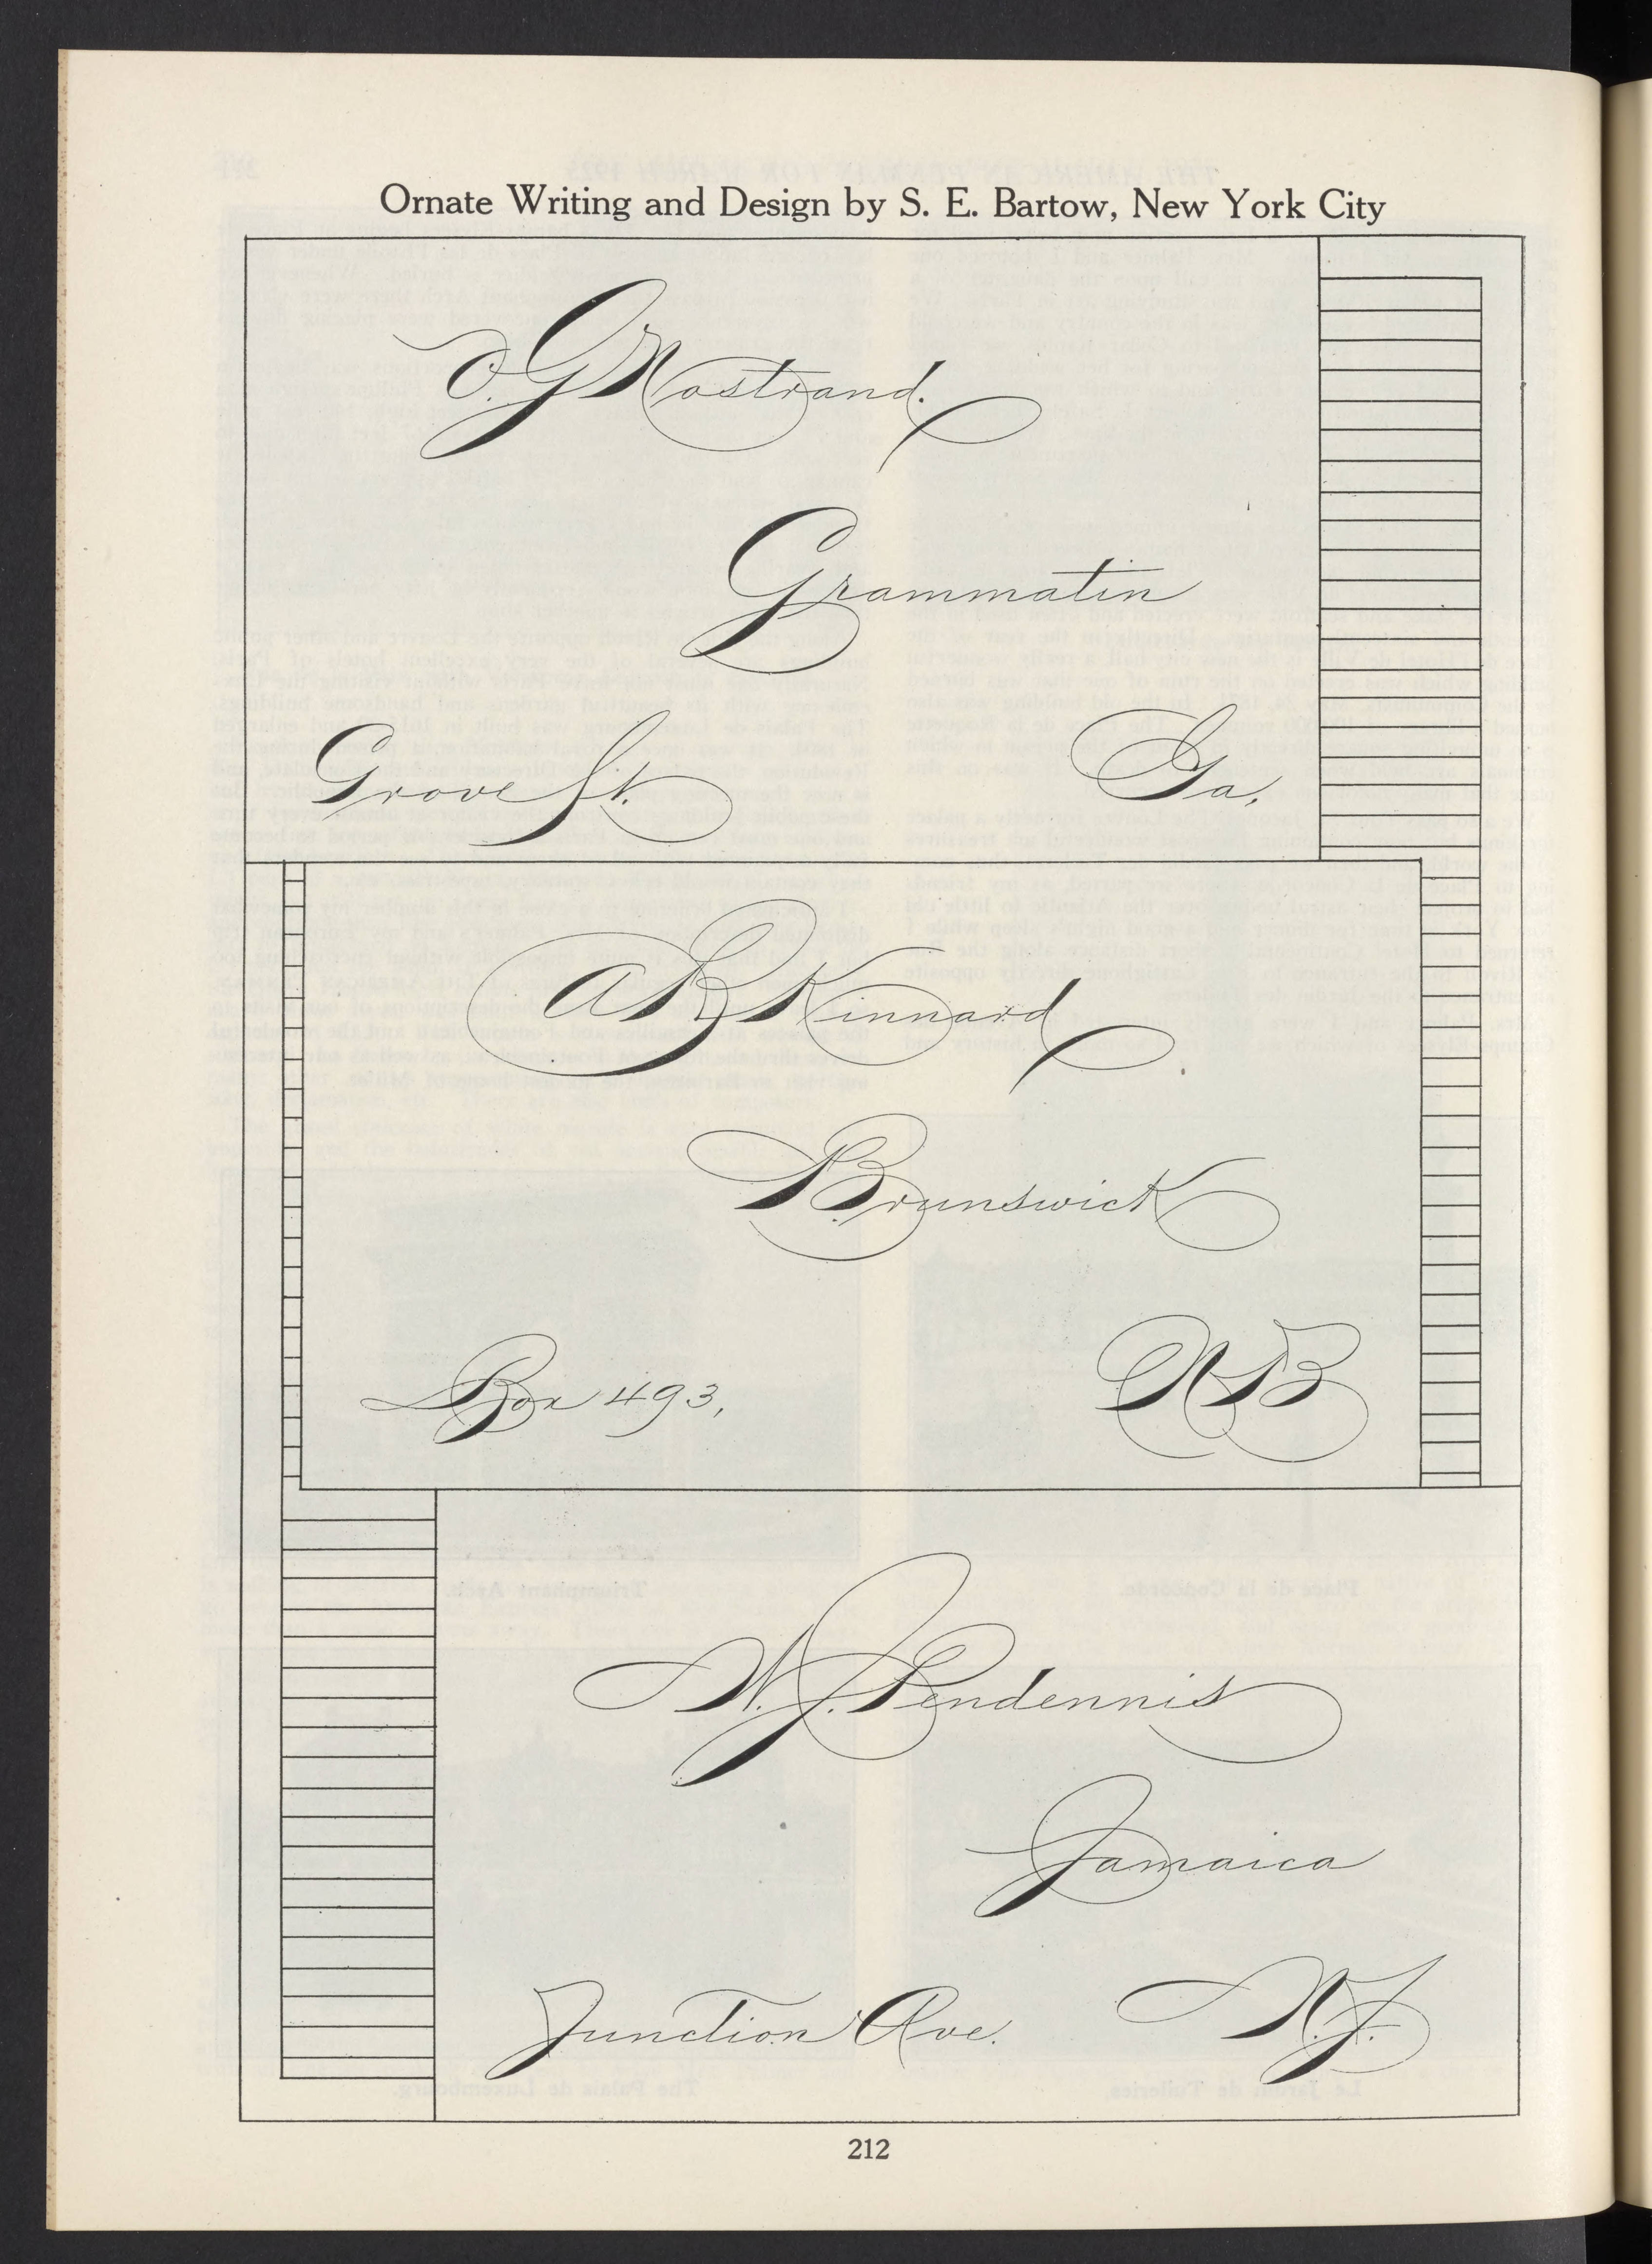 Ornate Writing and Design by S. E. Bartow, New York City
O. G. Nostrand.
Grammatin
Grove St. Ga.
A R Kinnard
Brunswick
Box 493, N B
W. J. Pendennis
Jamaica
Junction Ave. N. J.
212